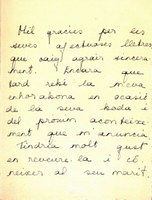 Mil gracies per les
seves afectuoses lletres
que vaig agrair sincera
ment. Encara que
tard rebi la meva
enhorabona en ocasió
de la seva boda i
del proxim aconteixe
ment que m'anuncia
Tindria molt gust
en reveure-la i co
neixer al seu marit.